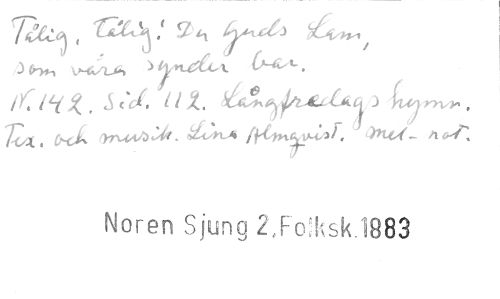 Tålig, Tålig! Du Guds Lam,
som våra synder bar.
N. 142. Sid. 112. Långfredagshymn.
Tex. och musik. Lina Almqvist. mel-not.
Noren Sjung 2, Folksk. 1883